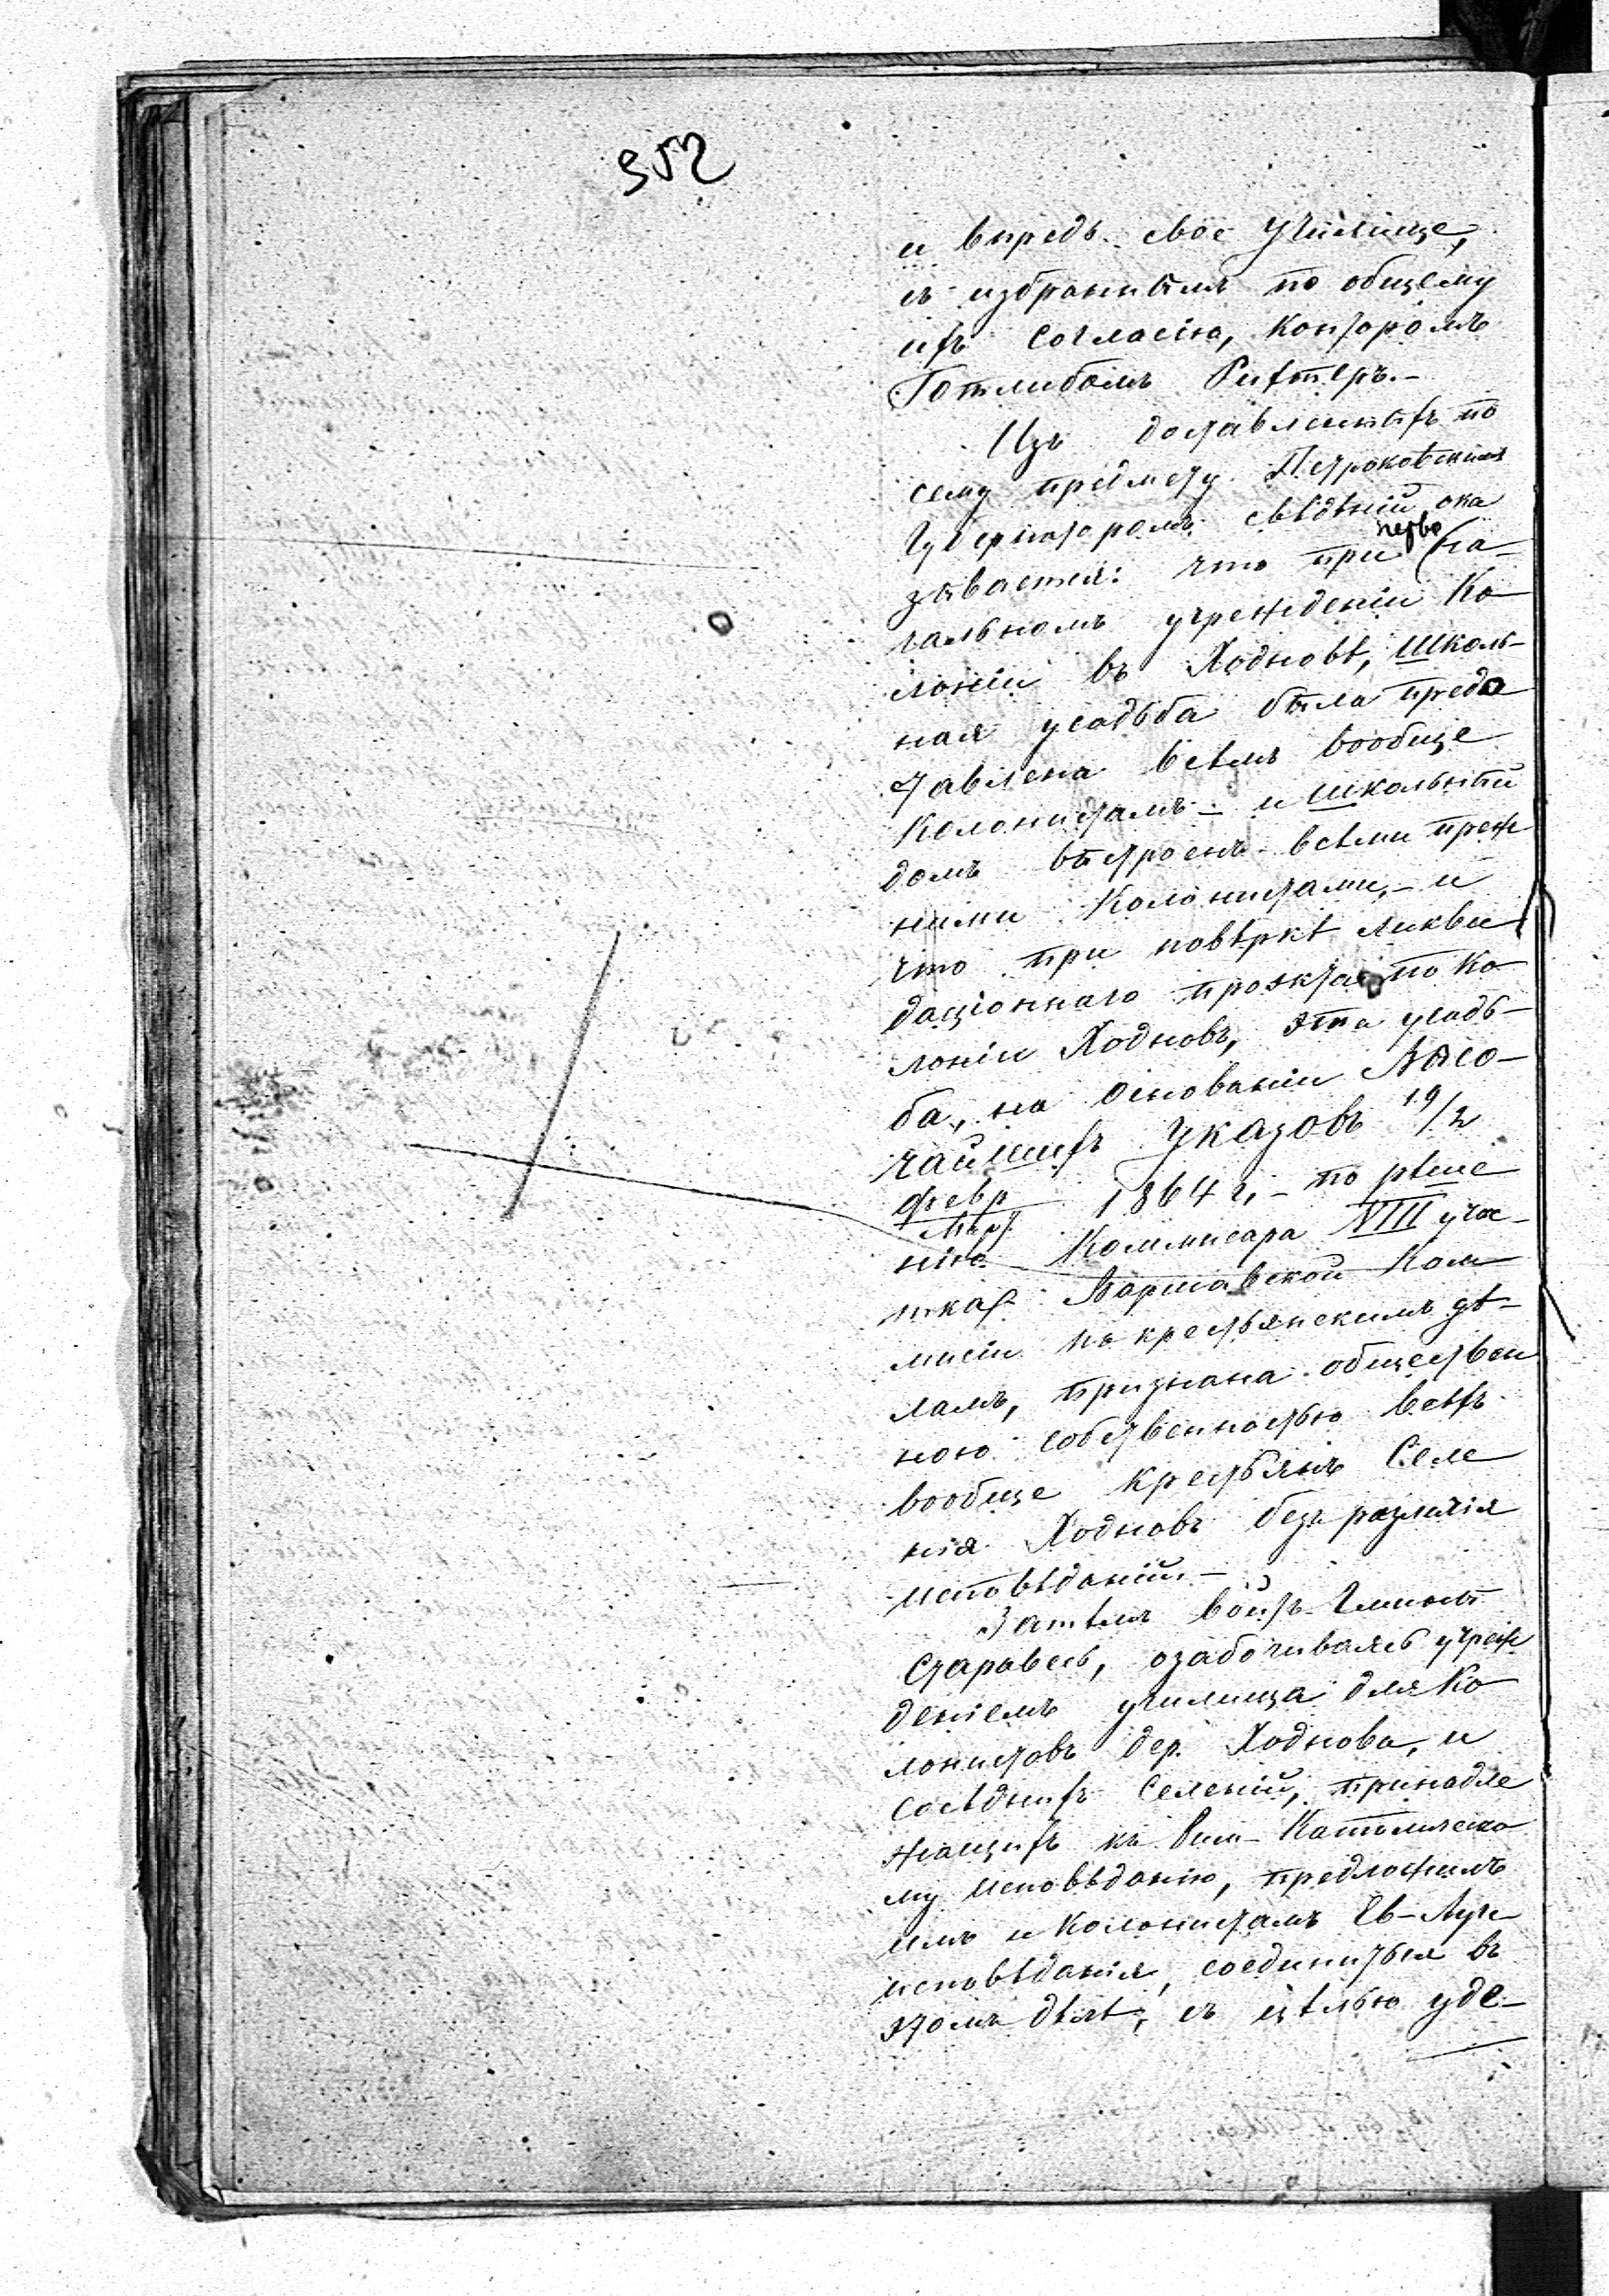 352
и впредь свое училище,
съ избраннымъ по общему
ихъ согласію, Канторомъ
Готлибомъ Рихтеръ.-
Изъ доставленныхъ по
сему предмету Петроковскимъ
Губернаторомъ свѣдѣній ока
зывается: что при перво на-
чальномъ учрежденіи Ко
лоніи въ Ходновѣ, Школь-
ная усадьба была предо
ставлена всѣмъ вообще
Колонистамъ - и школьный
домъ выстроенъ всѣми преж
ними Колонистами, - и
что при повѣркѣ ликви
даціоннаго проэкта по Ко
лоніи Ходновъ, эта усадь-
ба, на основаніи Высо-
чайшихъ Указовъ 19/2
февр/Март 1864 г. - по рѣше
нію Коммисара VIII учас-
тка Варшавской Ком
мисіи по крестьянскимъ дѣ-
ламъ, признана обществен
ною собственностью всѣхъ
вообще крестьянъ Селе
нія Ходновъ безъ различія
исповѣданій. -
Затѣмъ войтъ Гмины
Старавесь, озабочиваясь учреж
деніемъ училища для Ко
лонистовъ дер. Ходнова, и
сосѣднихъ селеній, принадле
жащихъ къ Рим-Католическо
му исповѣданію, предложилъ
имъ и Колонистамъ Ев-Аугс
исповѣданія, соединиться въ
этомъ дѣлѣ, съ цѣлью уде-